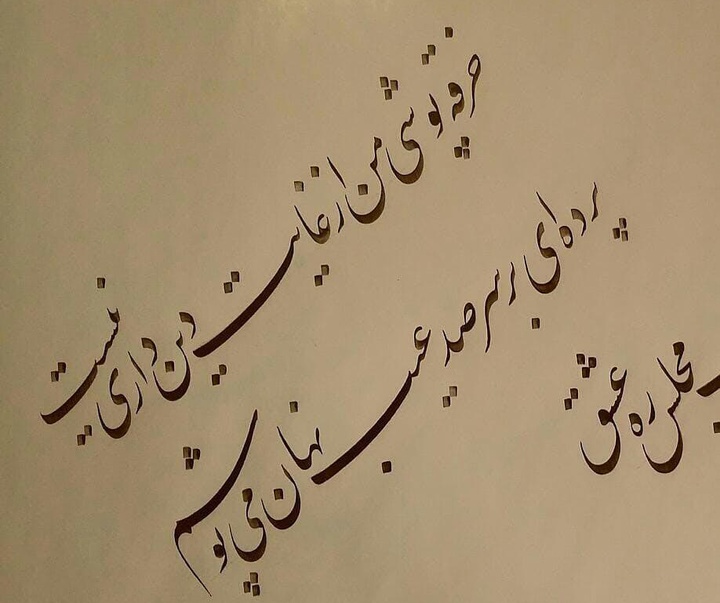 خرقه پوشی من از غایت دین داری نیست
پرده ای بر سر صد عیب نهان می پوشم
مجلس ره عشق